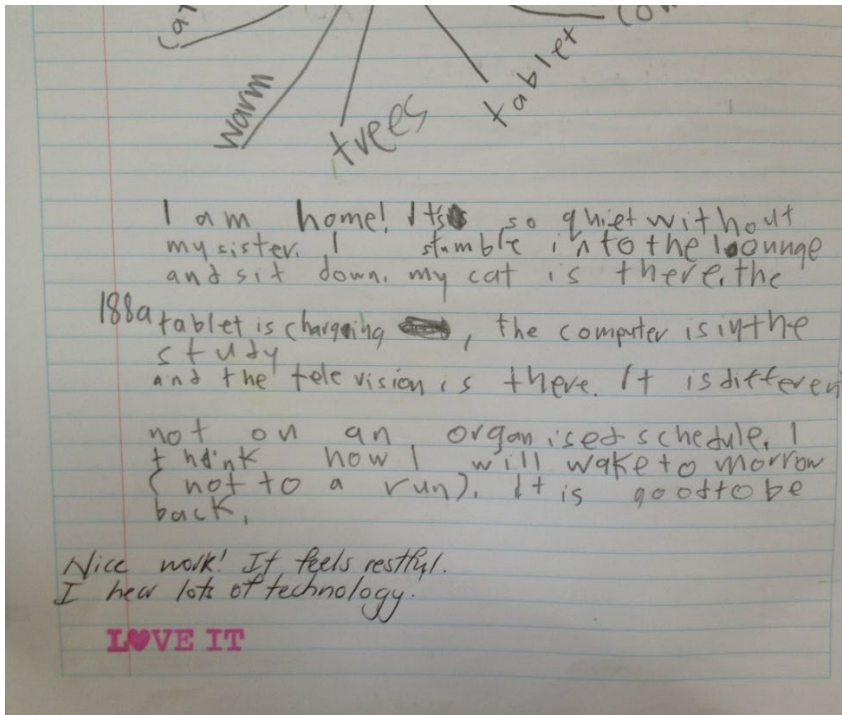 warm
trees
tablet
I am home! Its so quiet without
my sister. I stumble into the lounge
and sit down. my cat is there. the
188a tablet is charging, the computer is in the
study
and the television is there. It is differen
not on an organised schedule. I
think how I will wake tomorrow
(not to a run). It is good to be
back.
Nice work! It feels restful.
I hear lots of technology.
LOVE IT